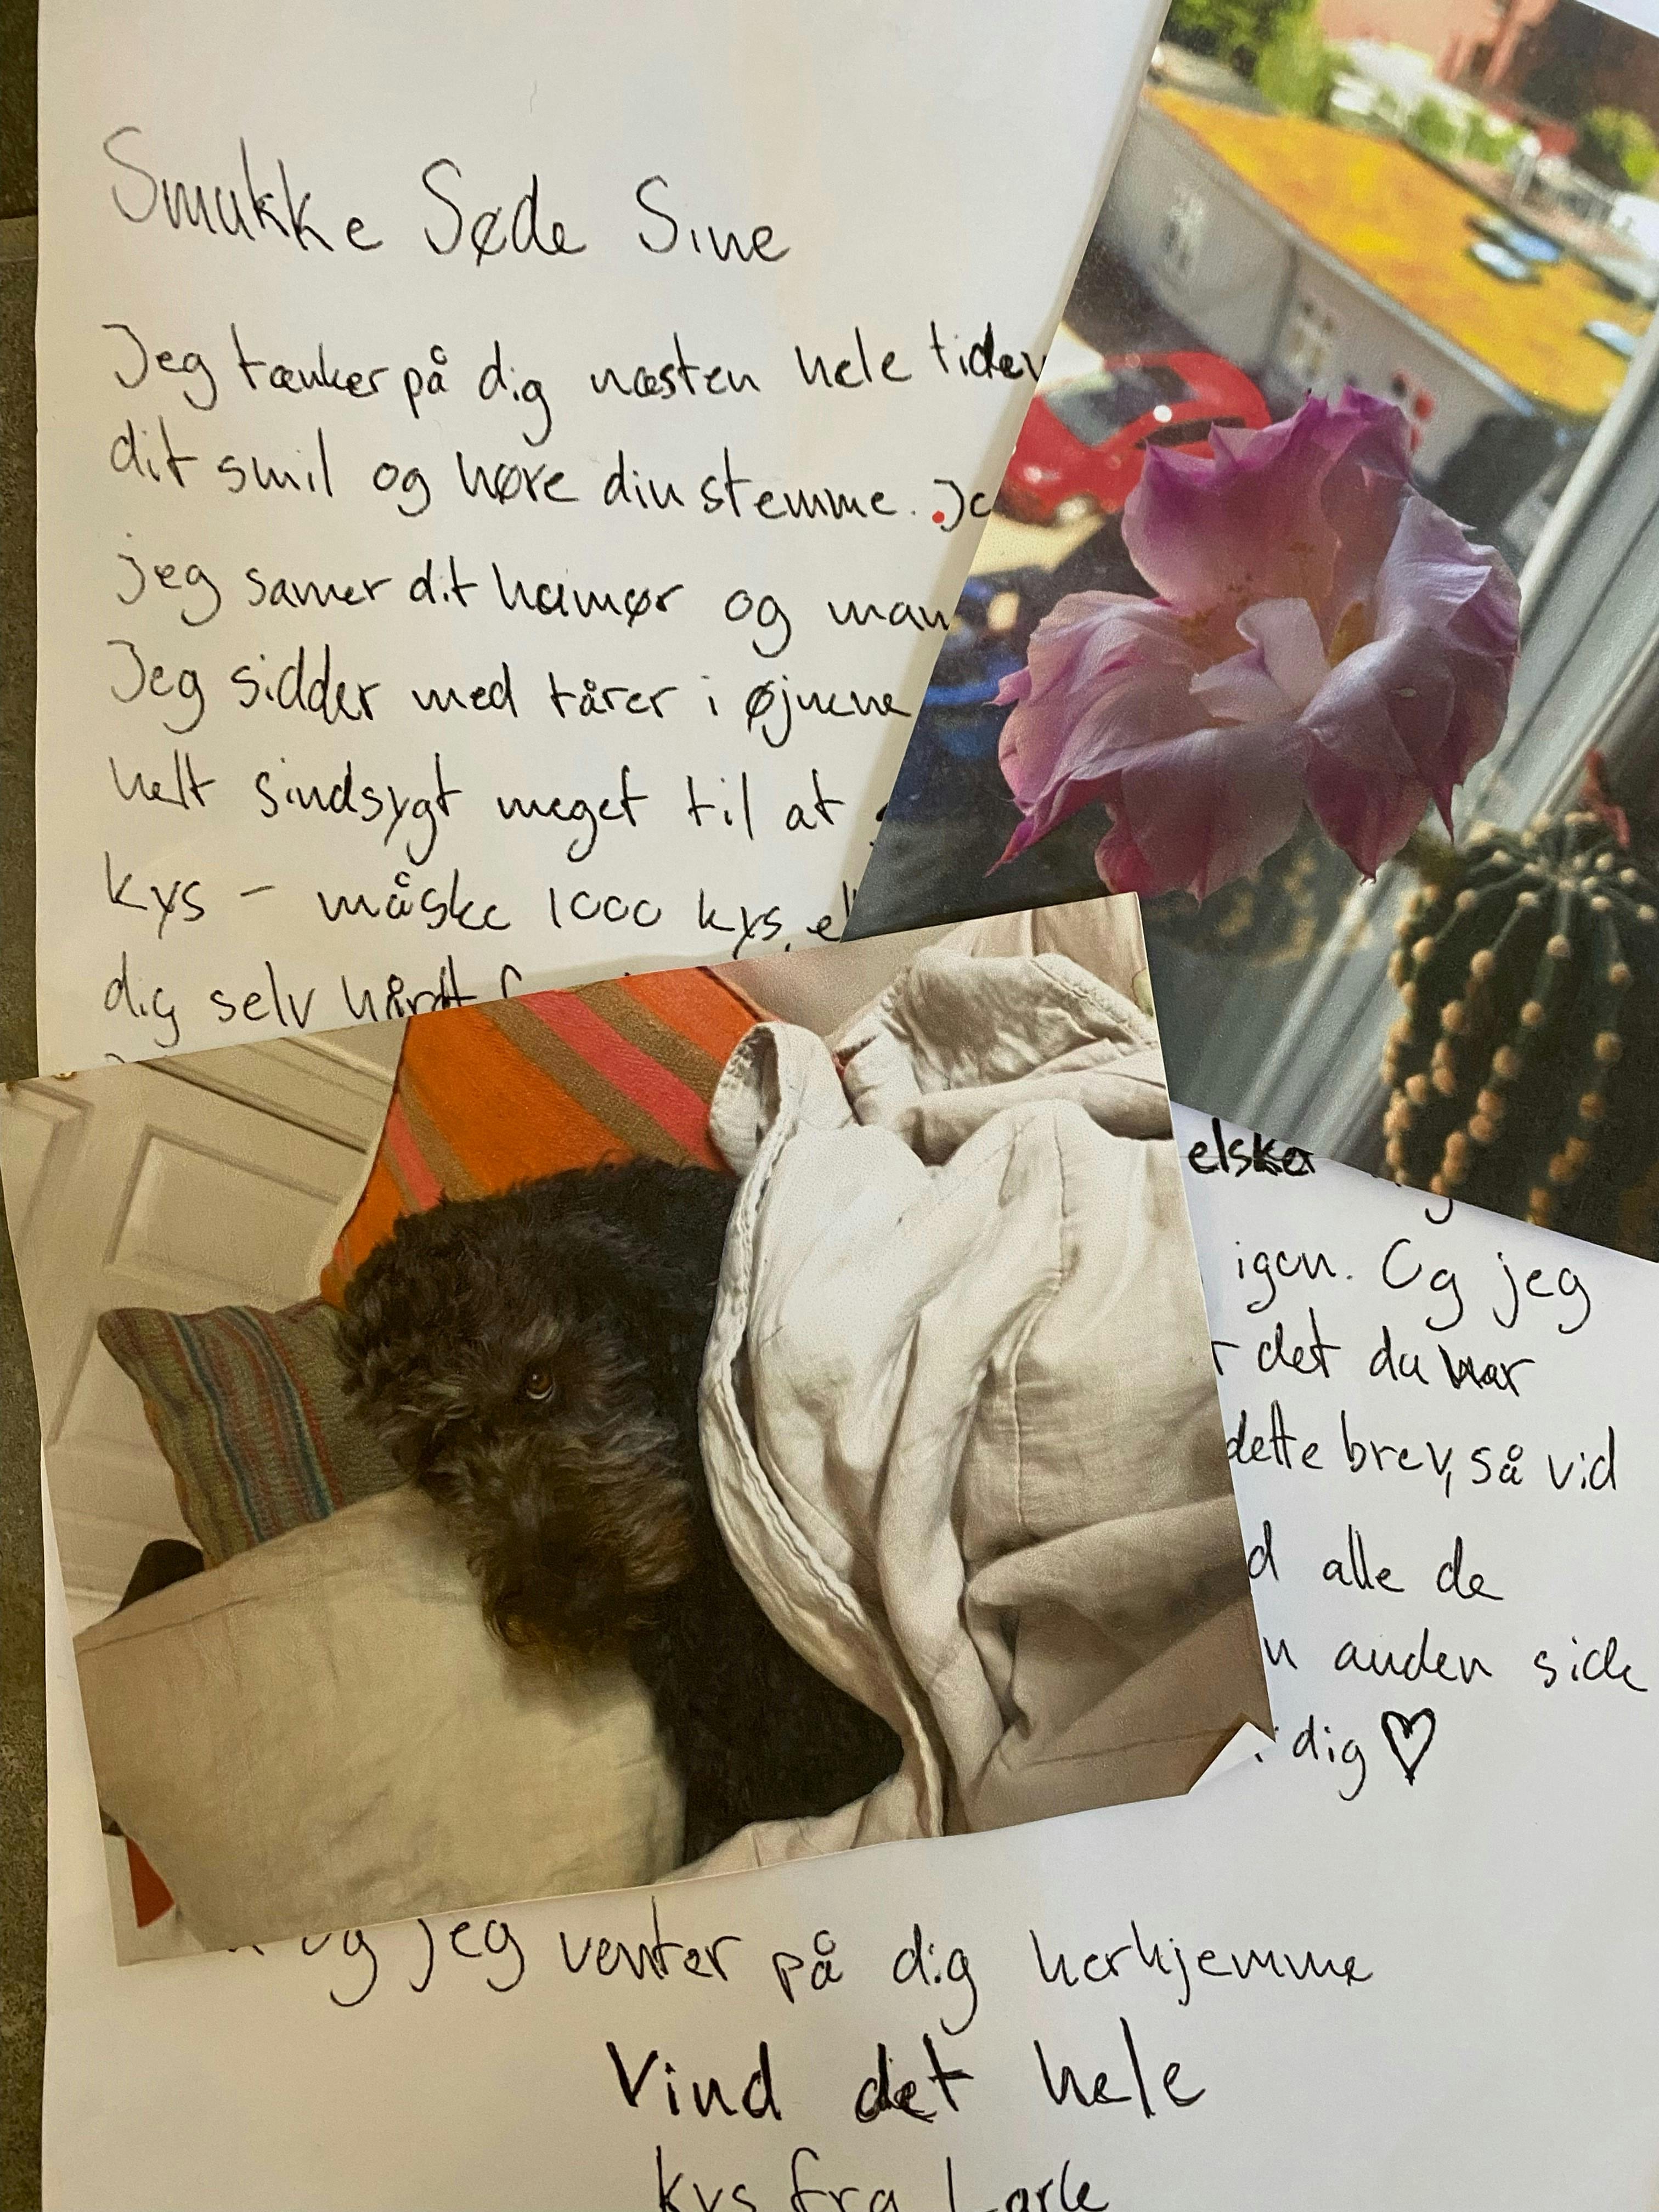 Smukke Søde Sine
Jeg tænker på dig næsten hele tiden
dit smil og høre din stemme.
jeg savner dit humør og
Jeg sidder med tårer i øjnene
helt sindsygt meget til at
kys – måske 1000 kys,
dig selv hårdt
elsker
igen. Og jeg
det du har
dette brev, så vid
alle de
anden side
dig ♡
og jeg venter på dig herhjemme
Vind det hele
kys fra